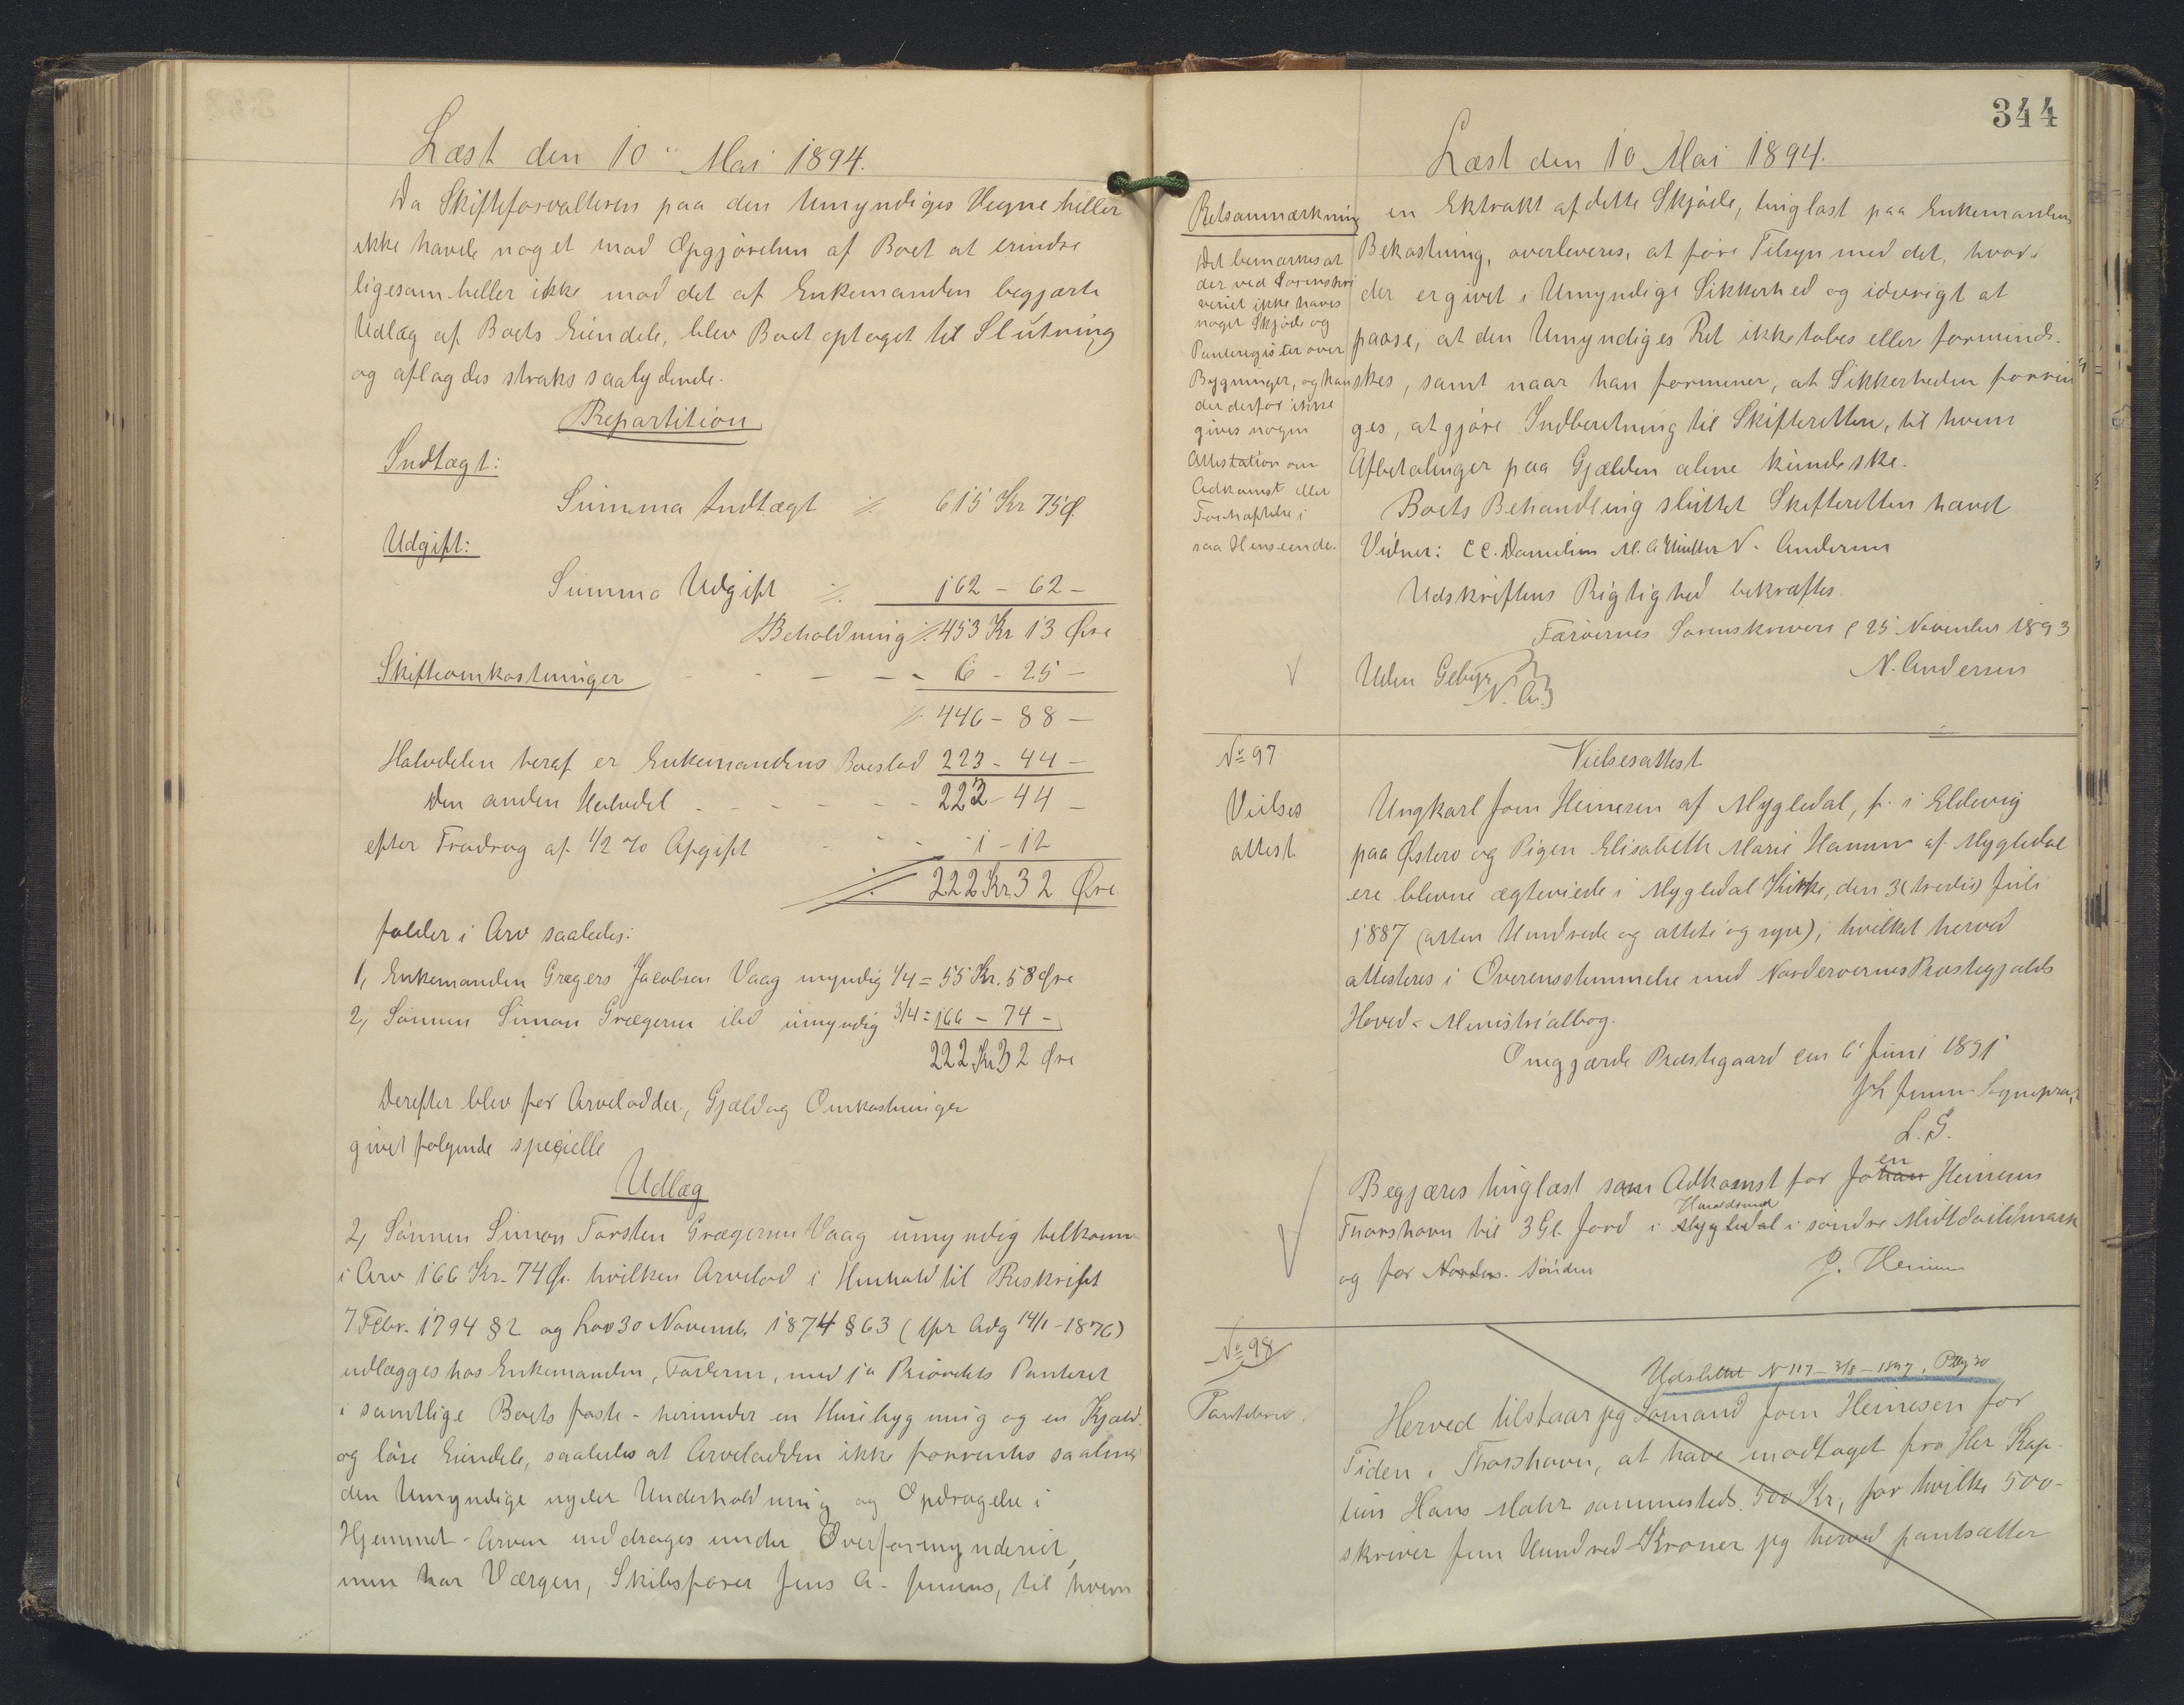 Læst den 10" Mai 1894.
Da Skifteforvalteren paa den Umyndiges Vegne heller
ikke havde noget mod Opgjörelsen af Boet at erindre
ligesom heller ikke mod det af Enkemanden begjærte
Udlæg af Boets Eiendele, blev Boet optaget til Slutning
og aflagdes straks saalydende.
Repartition
Indtægt:
Summa Indtægt ⁒ 615 Kr 75 Ø.
Udgift:
Summa Udgift ⁒ 162 - 62 -
Beholdning ⁒ 453 Kr 13 Øre
Skifteomkostninger - - - - 6 - 25 -
⁒ 446 - 88 -
Halvdelen heraf er Enkemandens Boeslod 223 - 44 -
Den anden Halvdel - - - - - 223 - 44 -
efter Fradrag af 1/2 % Afgift - - - 1 - 12
⁒ 222 Kr 32 Øre
falder i Arv saaledes:
1, Enkemanden Grægers Jacobsen Vaag myndig 1/4 = 55 Kr. 58 Øre
2, Sönnen Simon Grægersen ibd umyndig 3/4 = 166 - 74 -
222 Kr 32 Øre
Derefter blev for Arvelodder, Gjæld og Omkostninger
givet følgende specielle
Udlæg
2, Sönnen Simon Torsten Grægersen Vaag umyndig tilkomm
i Arv 166 Kr. 74 Ø. hvilken Arvelod i Henhold til Reskript
7 Febr. 1794 § 2 og Lov 30 Novemb. 1874 § 63 (Cfr Adg 14/1 - 1876)
udlægges hos Enkemanden, Faderen, med 1ste Prioritets Panteret
i samtlige Boets faste - herunder en Husebygning og en Kjæld.
og löse Eiendele, saaledes at Arvelodden ikke forrentes saalænge
den Umyndige nyder Underholdning og Opdragelse i
Hjemmet - Arven inddrages under Overformynderiet,
men har Værgen, Skibsfører Jens A. Jensens, til hvem
344
Læst den 10 Mai 1894.
Retsanmærkning
Det bemærkes at
der ved Sorenskri
veriet ikke haves
noget Skjöde og
Panteregister over
Bygninger, og kan
der derfor ikke
gives nogen
Attestation om
Adkomst eller
Forhæftelse i
saa Henseende.
en Ektrakt af dette Skjöde, tinglæst paa Enkemandens
Bekostning, overleveres, at føre Tilsyn med det, hvori
der er givet i Umyndige Sikkerhed og iövrigt at
paase, at den Umyndiges Ret ikke tabes eller formind-
skes, samt naar han formener, at Sikkerheden forrin
ges, at gjöre Indberetning til Skifteretten, til hvem
Afbetalinger paa Gjælden alene kunde ske.
Boets Behandling sluttet Skifteretten hævet
Vidner: C C. Danielsen M. A. Müller N. Andersen
Udskriftens Rigtighed bekræftes.
Færøernes Sorenskriveri d 25 November 1893
N. Andersen
Uden Gebyr
N. A.
No 97
Vielses
attest
Vielsesattest
Ungkarl Joen Heinesen af Mygledal, f. i Eldevig
paa Østerø og Pigen Elisabeth Marie Hansen af Mygledal
ere blevne ægteviede i Mygledal Kirke, den 3 (tredie) Juli
1887 (atten Hundrede og otteti og syv); hvilket herved
attesteres i Overensstemmelse med Norderøernes Præstegjælds
Hoved-Ministrialbog.
Onegjærde Præstegaard den 6' Juni 1891
Jensen Sognepræst
L. S.
Begjæres tinglæst som Adkomst for Johan en Heinesen
Haraldsund
Thorshavn til 3 Gl. Jord i Mygledal i söndre Midtdeildmark
og for Norden. Sönden
P. Heinesen
No 98
Pantebrev.
Udslettet N 117 - 3/8 - 1897, Pag 30
Herved tilstaar jeg Sömand Joen Heinesen for
Tiden i Thorshavn, at have modtaget fra Her Kap-
tein Hans Mohr sammesteds 500 Kr, for hvilke 500-
skriver fem Hundred Kroner jeg herved pantsætter